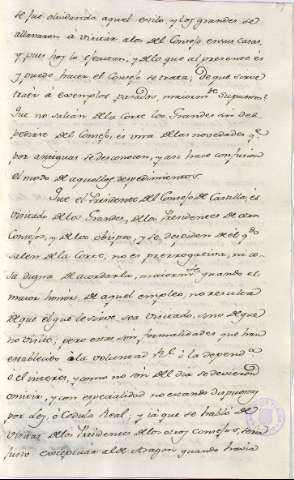 se fue olvidando aquel estilo, y los grandes se
allanaron à visitar a los del Consejo en sus casas
y pues hoy lo ejecutan, y de lo que al presente es
y puede hacer el Consejo se trata; De que sirve
traer à exemplos pasados,
Que no salian de la Corte los Grandes sin
pedirse del Consejo, es una de las novedades q.e
por antiguas se desconocen, y asi hace confusion
el modo de aquellos despedimientos.
Que el Presidente del Consejo de Castilla, es
visitado de los Grandes, de los Presidentes de otros
Consejos, y de los obispos, y se despiden de el q.do
salen de la Corte, no es prerrogativa, ni co-
sa digna de acordarla, mayorm.te quando el
maior honor de aquel empleo, no resulta
de que el que le sirve sea visitado, sino de que
no visite, pero estas son formalidades que han
establecido à la voluntad R.l ò la depend.a
ò el interes, y como no son del dia se devieron
omitir, y con especialidad no estando dispuesto
por ley, ò Cedula Real, y ià que se habla de
visitas de los Presidentes de los otros Consejos, será
justo exceptuar al de Aragon quando havia